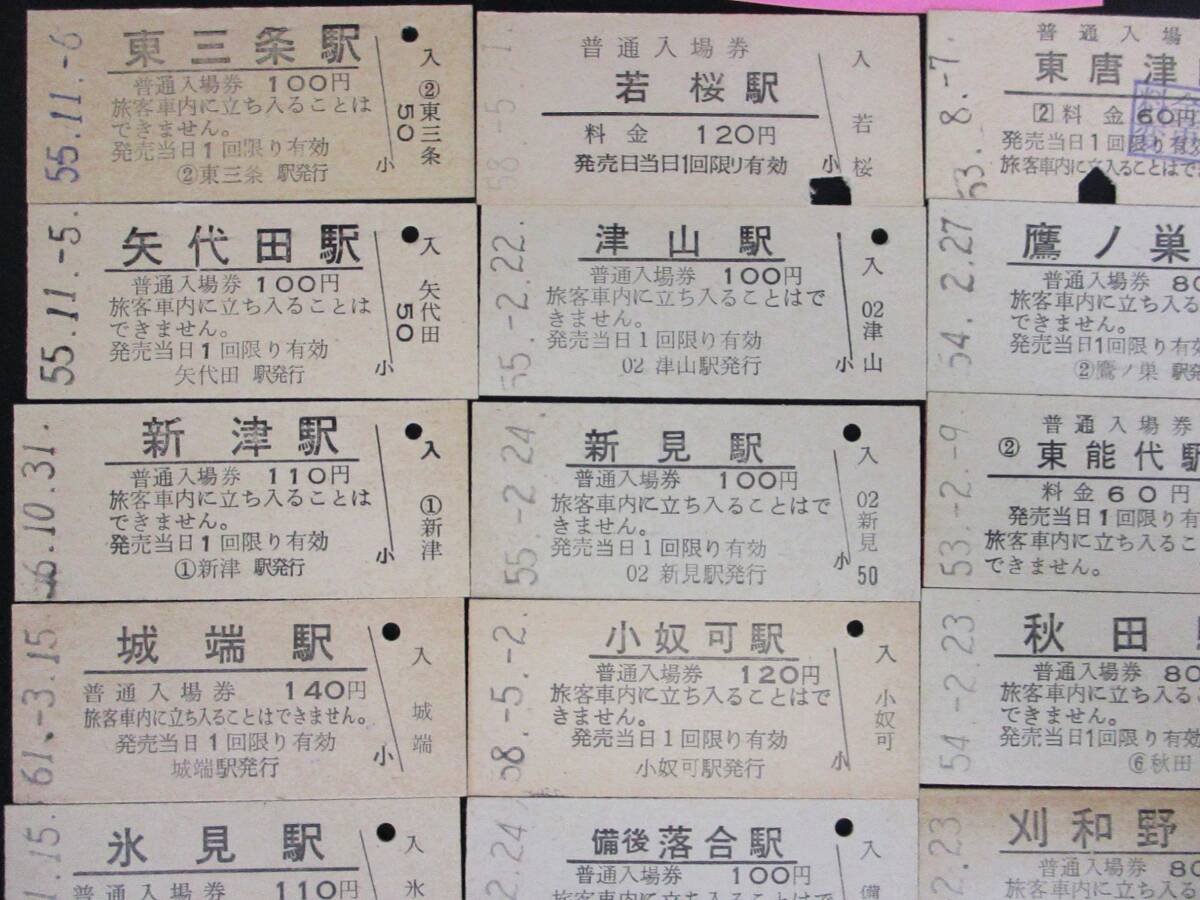 55.11.-6
東三条駅
普通入場券 100円
旅客車内に立ち入ることは
できません。
発売当日1回限り有効
②東三条 駅発行
小
入
②東三条
50
58.-5.-1.
普通入場券
若桜駅
料金 120円
発売日当日1回限り有効
小
入
若桜
53.8.-7.
普通入場
東唐津
2 料金 60円
発売当日1回限り有効
旅客車内に立入ることはで
55.11.-5.
矢代田駅
普通入場券 100円
旅客車内に立ち入ることは
できません。
発売当日1回限り有効
矢代田 駅発行
小
入
矢代田
50
55.-2.22.
津山駅
普通入場券 100円
旅客車内に立ち入ることはで
きません。
発売当日1回限り有効
02 津山駅発行
小
入
02津山
54.2.27
鷹ノ巣
普通入場券 80
旅客車内に立ち入
できません。
発売当日1回限り有
②鷹ノ巣 駅発
56.10.31.
新津駅
普通入場券 110円
旅客車内に立ち入ることは
できません。
発売当日1回限り有効
①新津 駅発行
小
入
①新津
55.-2.24.
新見駅
普通入場券 100円
旅客車内に立ち入ることはで
きません。
発売当日1回限り有効
02 新見駅発行
小
入
02新見
50
53.-2.-9.
普通入場券
② 東能代駅
料金60円
発売当日1回限り有
旅客車内に立ち入るこ
できません。
61.-3.15.
城端駅
普通入場券 140円
旅客車内に立ち入ることはできません。
発売当日1回限り有効
城端駅発行
小
入
城端
58.-5.-2.
小奴可駅
普通入場券 120円
旅客車内に立ち入ることはで
きません。
発売当日1回限り有効
小奴可駅発行
小
入
小奴可
54.-2.23
秋田
普通入場券 80
旅客車内に立ち入る
できません。
発売当日1回限り有
⑥秋田
1.15.
氷見駅
普通入場券 110円
入
氷
2.24.
備後落合駅
普通入場券 100円
入
備
2.23
刈和野
普通入場券 80
旅客車内に立ち入